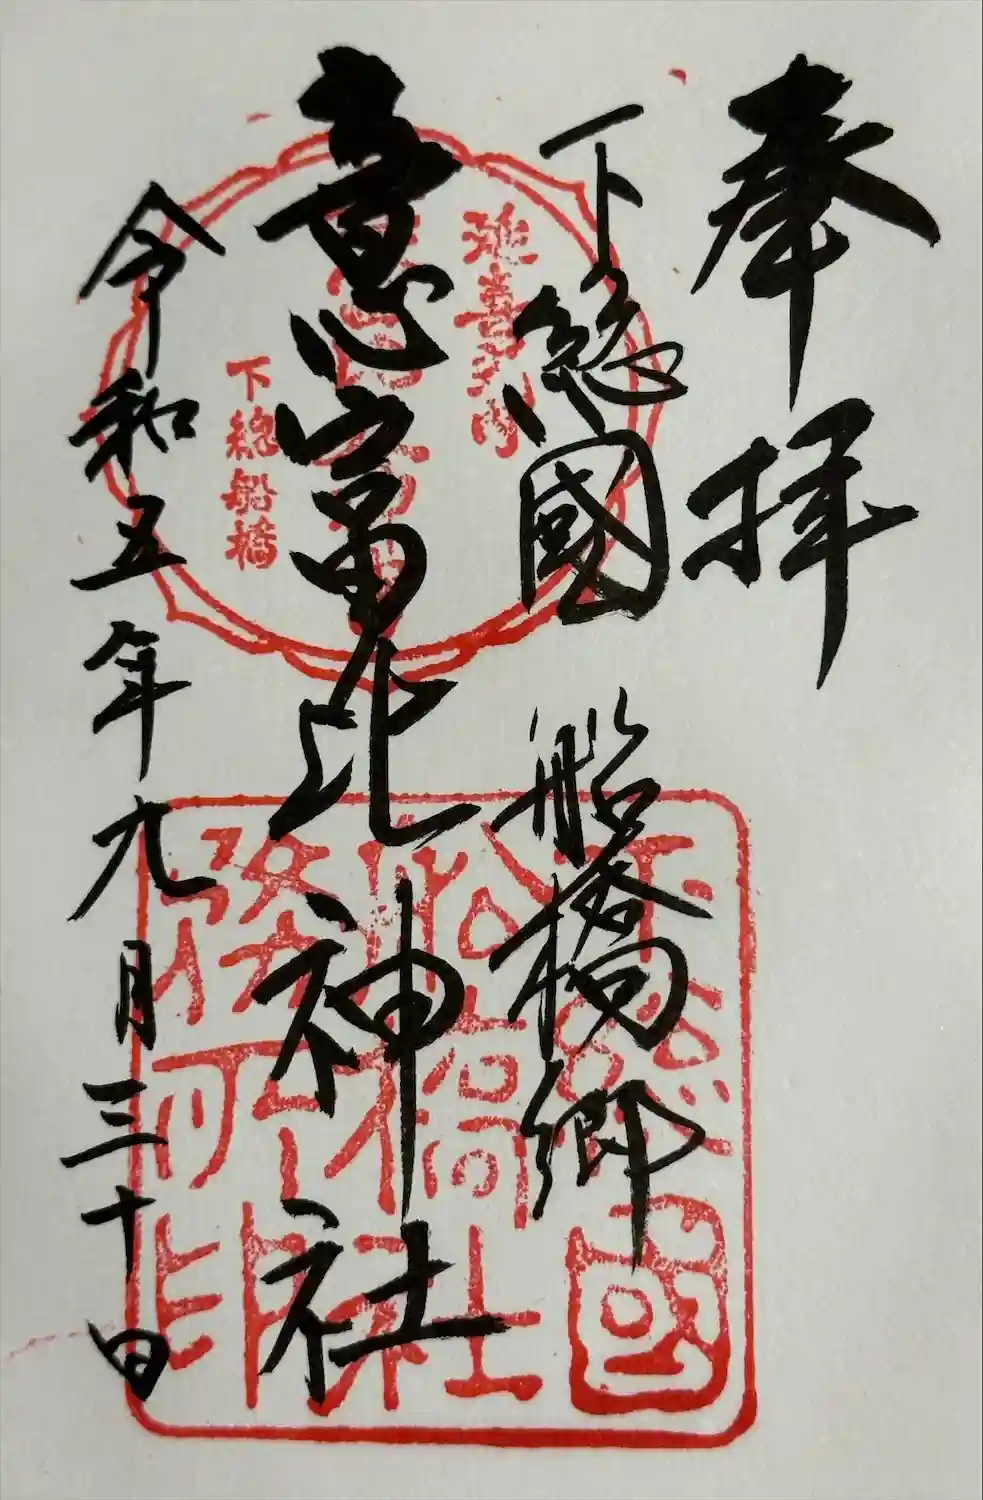 奉拝
下總國 船橋郷
意富比神社
令和五年九月三十日
延喜式内
下總船橋